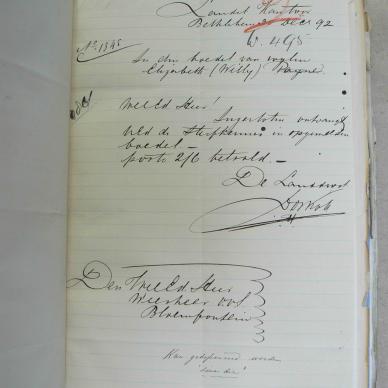 Landd Kantoor
Bethlehem Dec 92
No. 1385
W. 495
In den boedel van wylen
Elizabeth (Willy) Rayner
WelEd Heer!
Ingesloten ontvangt
UEd de Sterfkennis in opgemelden
boedel —
porto 2/6 betaald —
De Landdrost
Den WelEd Heer
Weesheer OVS
Bloemfontein
Kan gedeponeerd worden